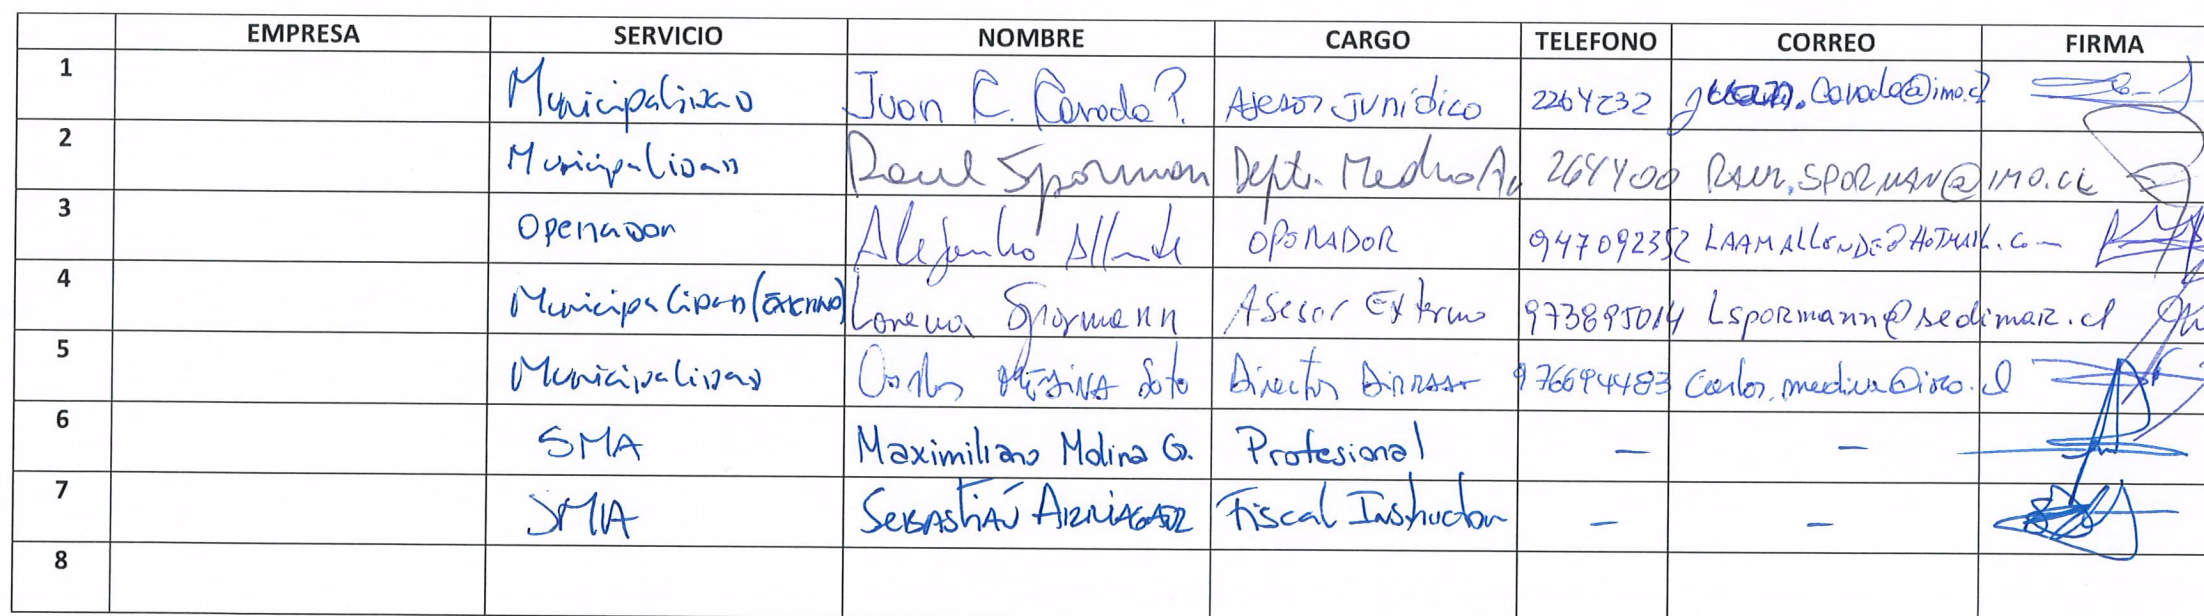 EMPRESA SERVICIO NOMBRE CARGO TELEFONO CORREO FIRMA
1 Municipalidad Juan C. Cavada P. Asesor Jurídico 2264232 juan.cavada@imo.cl
2 Municipalidad Raul Sporman Dept. Medio 264400 RAUL.SPORMAN@IMO.CL
3 Operador Alejandro Allende OPERADOR 947092352 LAAMALLENDE@HOTMAIL.com
4 Municipalidad (externo) Lorena Spormann Asesor Externo 973895014 Lspormann@sedimar.cl
5 Municipalidad Carlos MEDINA Soto Director 976694483 Carlos.medina@imo.cl
6 SMA Maximiliano Molina G. Profesional — —
7 SMA SEBASTIÁN ARRIAGADA Fiscal Instructor — —
8